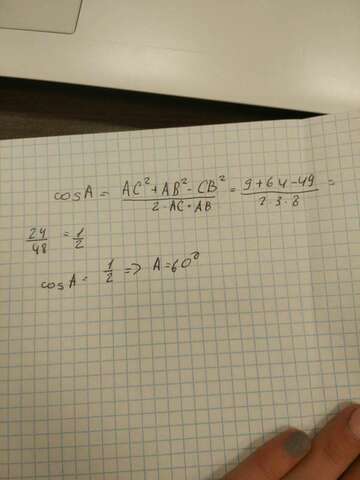 cosA = AC²+AB²-CB² / 2·AC·AB = 9+64-49 / 2·3·8 =
24/48 = 1/2
cosA = 1/2 => A=60°